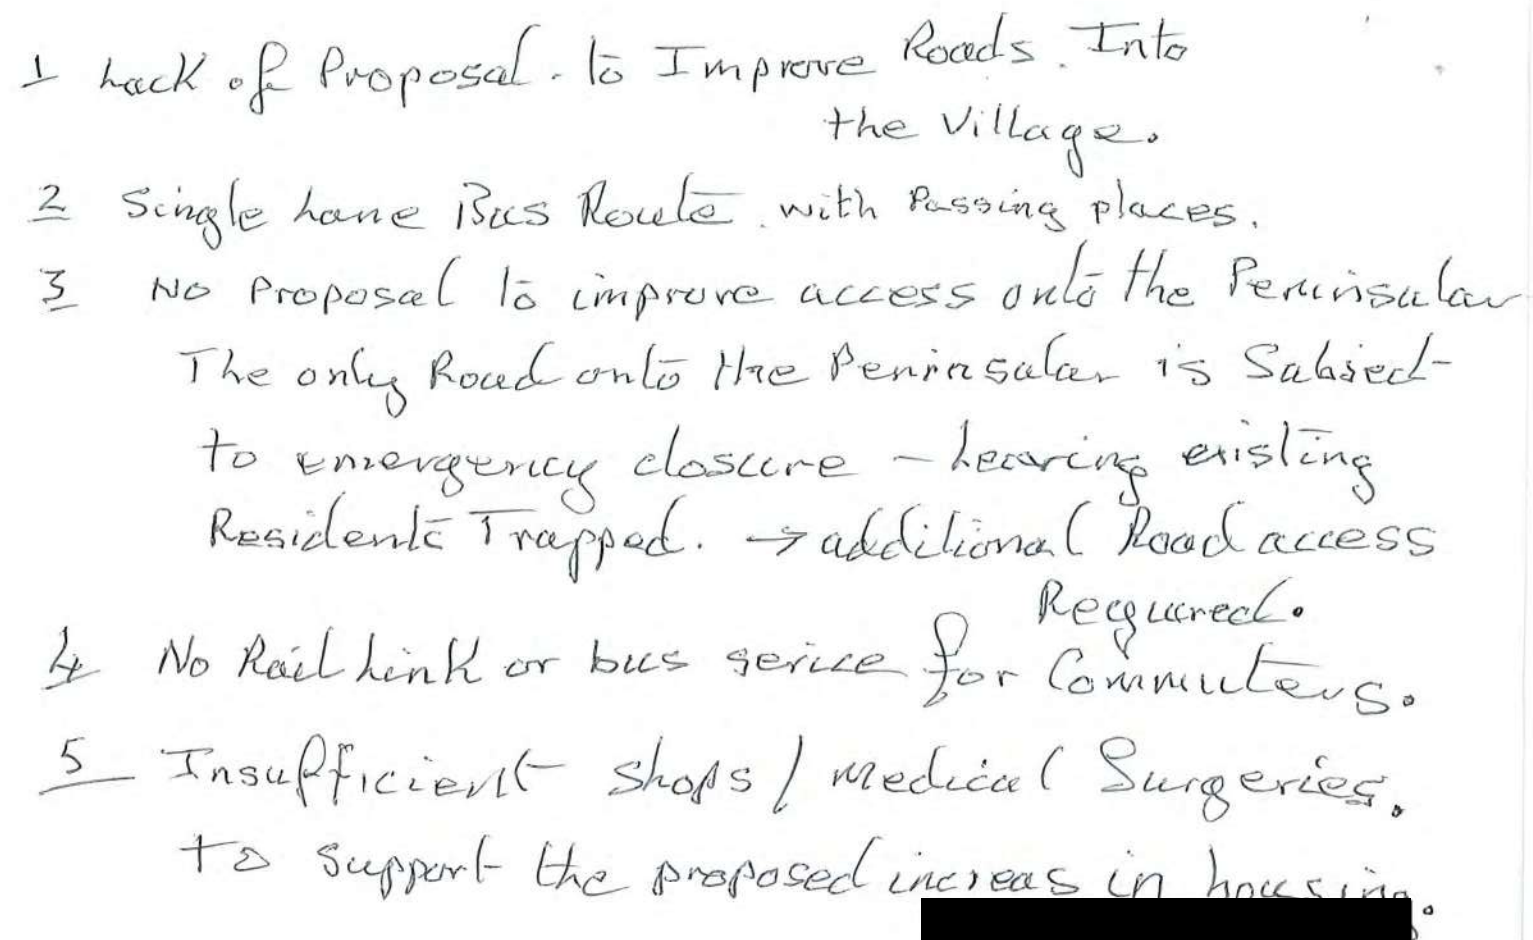 1 Lack of Proposal. to Improve Roads. Into
the Village.
2 Single Lane Bus Route. with Passing places.
3 No Proposal to improve access onto the Peninsular
The only Road onto the Peninsular is Subject
to emergency closure - Leaving existing
Residents Trapped. → additional Road access
Required.
4 No Rail Link or bus serice for Commuters.
5 Insufficient shops / medical Surgeries.
to support the proposed increas in housing.